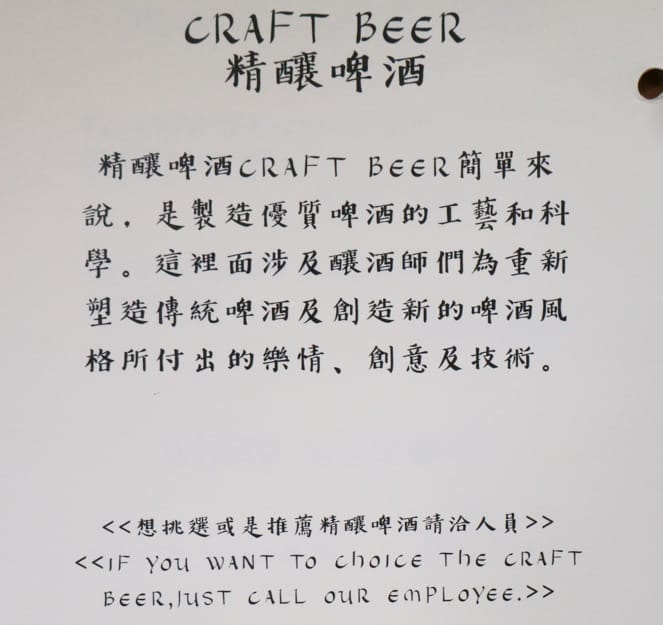 CRAFT BEER
精釀啤酒
精釀啤酒CRAFT BEER簡單來
說，是製造優質啤酒的工藝和科
學。這裡面涉及釀酒師們為重新
塑造傳統啤酒及創造新的啤酒風
格所付出的樂情、創意及技術。
<<想挑選或是推薦精釀啤酒請洽人員>>
<<IF YOU WANT TO CHOICE THE CRAFT
BEER,JUST CALL OUR EMPLOYEE.>>